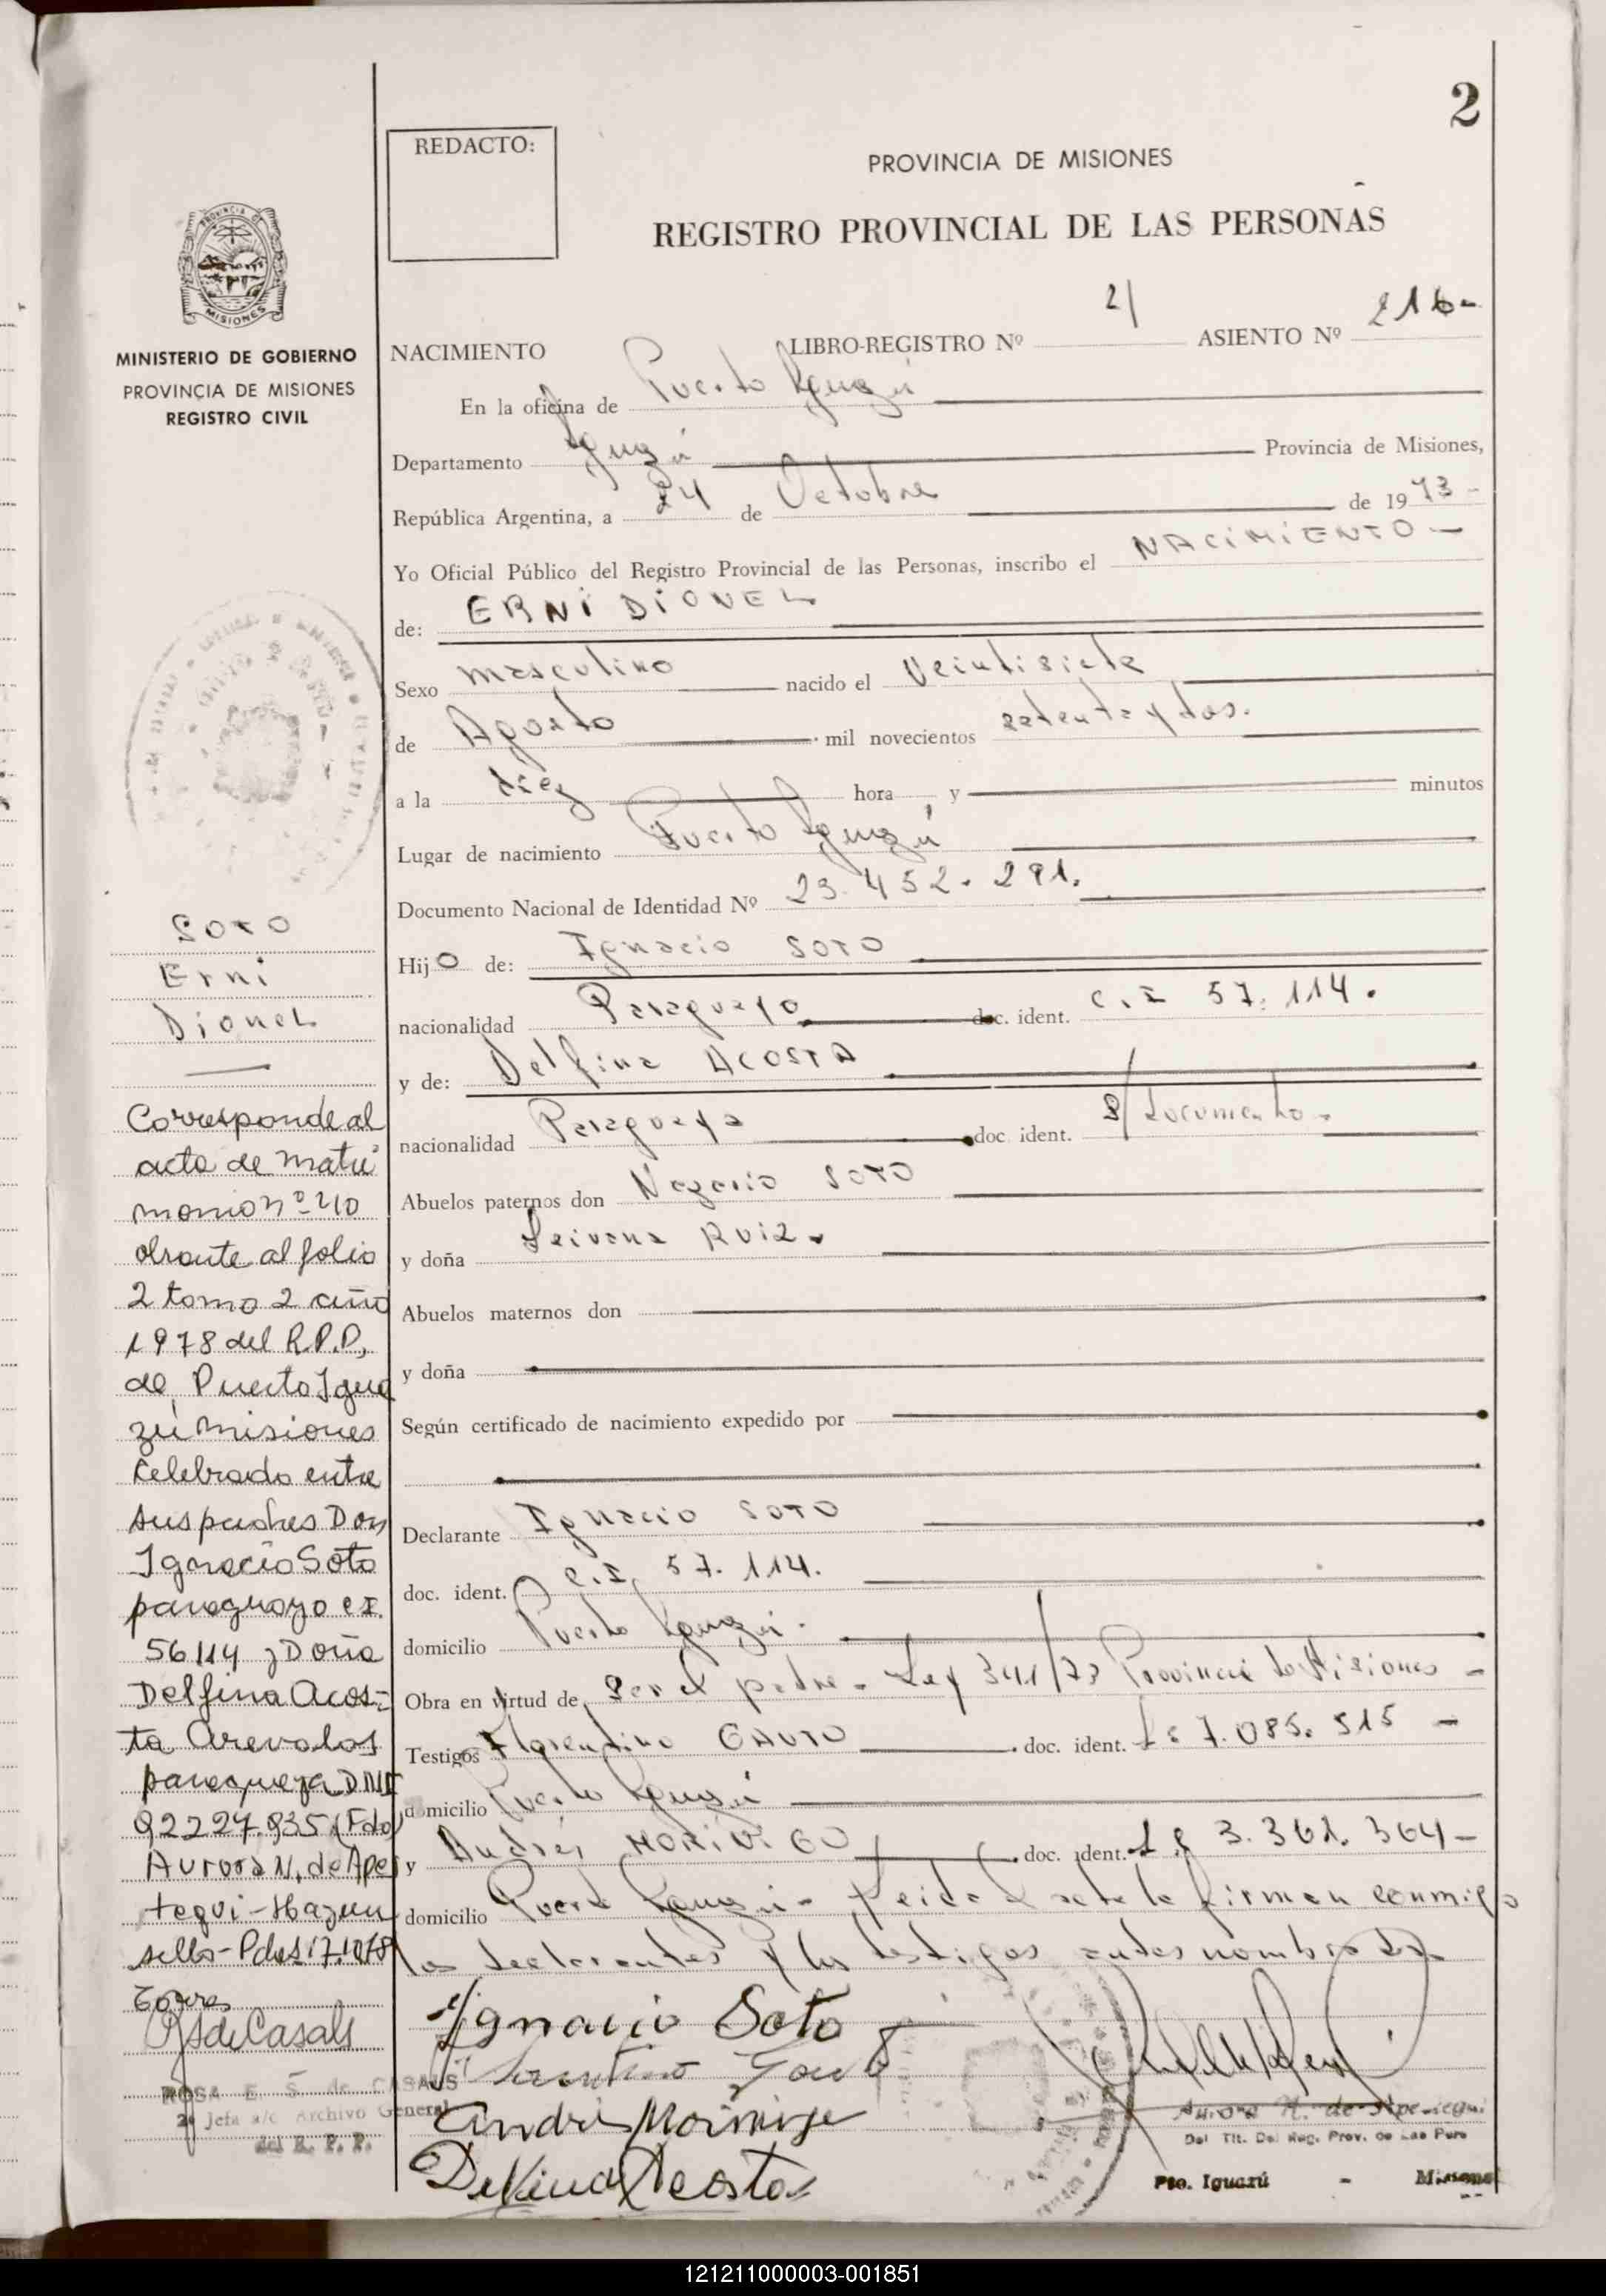 2
REDACTO:
PROVINCIA DE MISIONES
REGISTRO PROVINCIAL DE LAS PERSONAS
MISIONES
MINISTERIO DE GOBIERNO
PROVINCIA DE MISIONES
REGISTRO CIVIL
NACIMIENTO LIBRO-REGISTRO Nº 2/ ASIENTO Nº 216-
En la oficina de Puerto Iguazú
Departamento Iguazú Provincia de Misiones,
República Argentina, a 24 de Octubre de 1973-
Yo Oficial Público del Registro Provincial de las Personas, inscribo el NACIMIENTO-
de: ERNI DIONEL
Sexo masculino nacido el Veintisiete
de Agosto mil novecientos setenta y dos.
a la diez hora y minutos
Lugar de nacimiento Puerto Iguazú
Documento Nacional de Identidad Nº 23.452.291.
Hijo de: Ignacio SOTO
nacionalidad Paraguayo doc. ident. C.I 57.114.
y de: Delfina ACOSTA
nacionalidad Paraguaya doc. ident. S/documento.
Abuelos paternos don Nazario SOTO
y doña RUIZ.
Abuelos maternos don
y doña
Según certificado de nacimiento expedido por
Declarante Ignacio SOTO
doc. ident. C.I. 57.114.
domicilio Puerto Iguazú.
Obra en virtud de Ser el padre - Ley 341/73 Provincia de Misiones -
Testigos Florentino GAUTO doc. ident. 7.085.515 -
domicilio Puerto Iguazú
y Andrés MORINIGO doc. ident. 3.361.364-
domicilio Puerto Iguazú - Leida el acta la firman conmigo
los declarantes y los testigos antes nombrados
Ignacio Soto
Andres Morinigo
Delfina Acosta
Aurora N. de Apestegui
Del Tit. Del Reg. Prov. de Las Pers
Pto. Iguazú - Misiones
SOTO
Erni
Dionel
Corresponde al
acta de matri
monio nº 210
obrante al folio
2 tomo 2 año
1978 del R.P.P.
de Puerto Igua
zú Misiones
Celebrado entre
sus padres Don
Ignacio Soto
paraguayo CI.
56114 y Doña
Delfina Acos-
ta Arevalos
paraguaya DNI
92227.935 (Fdo)
Aurora N. de Apes
tegui - Hay un
sello-Pdas
RSdeCasals
ROSA E. S. de CASALS
2ª Jefa a/c Archivo General
del R. P. P.
121211000003-001851